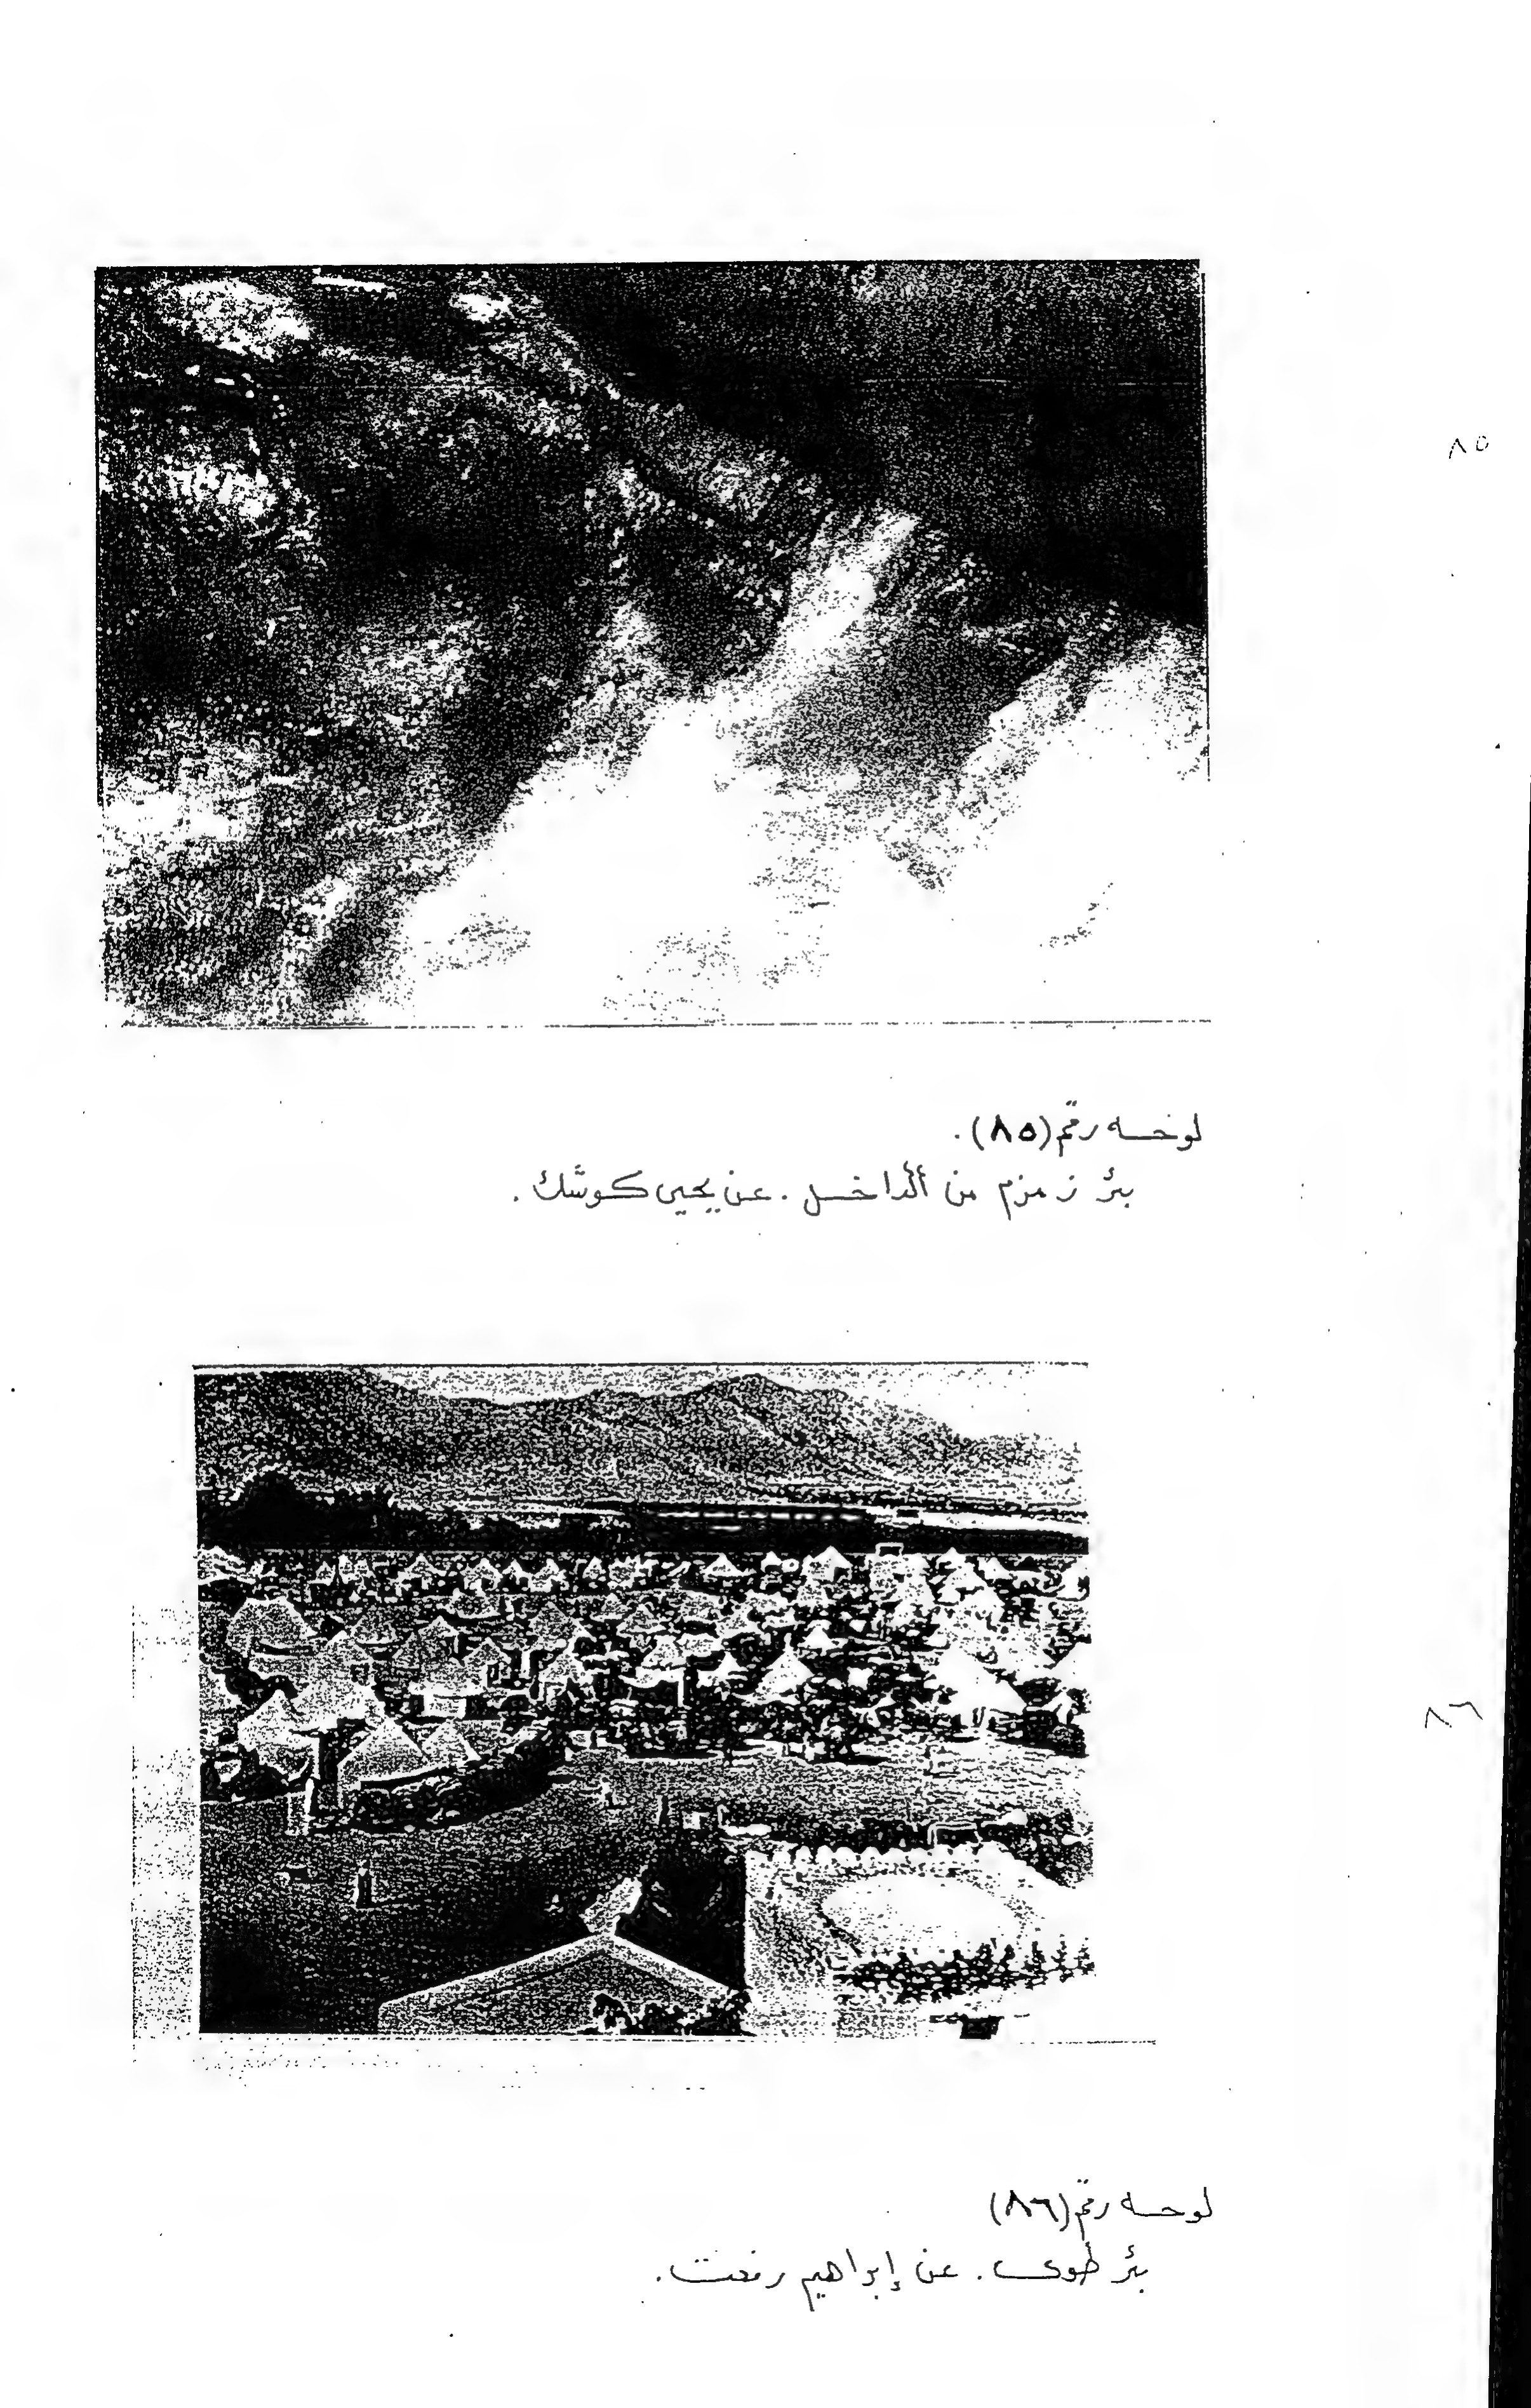 ٨٥
لوحه رقم (٨٥).
بئر زمزم من الداخل . عن يحيى كوشك .
٨٦
لوحه رقم (٨٦)
بئر طوى . عن إبراهيم رفعت .